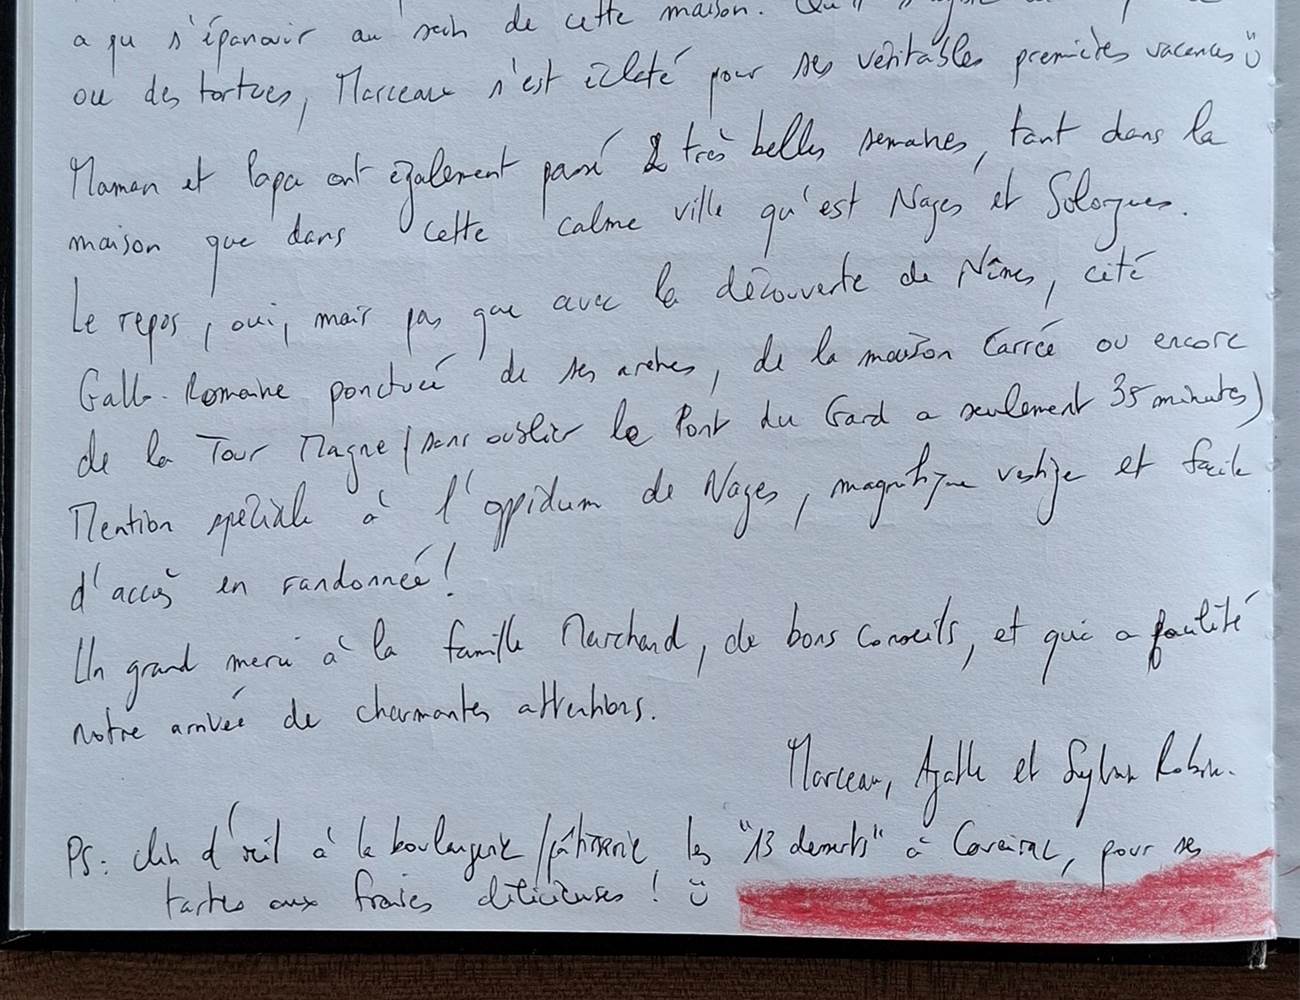 a pu s'épanouir au sein de cette maison. Qu'il s'agisse
ou des tortues, Marceau s'est éclaté pour ses véritables premières vacances
Maman et Papa ont également passé 2 très belles semaines, tant dans la
maison que dans cette calme ville qu'est Nages et Solorgues.
Le repos, oui, mais pas que avec la découverte de Nîmes, cité
Gallo-Romaine ponctuée de ses arènes, de la maison Carrée ou encore
de la Tour Magne (sans oublier le Pont du Gard a seulement 35 minutes)
Mention spéciale à l'oppidum de Nages, magnifique vestige et facile
d'accès en randonnée !
Un grand merci à la famille Marchand, de bons conseils, et qui a facilité
notre arrivée de charmantes attentions.
Marceau, Agathe et Sylvain Robin.
PS: clin d'œil à la boulangerie/pâtisserie les "13 desserts" à Caveirac, pour ses
tartes aux fraises délicieuses !